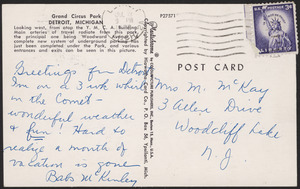 Grand Circus Park
DETROIT, MICHIGAN
View looking from atop the Y. M. C. A. Building.
Main arteries of travel radiate from this park,
the principal one being Woodward Avenue. A
complete new system of underground parking has
just been added under the Park, and various
entrances and exits can be seen in this view.
Greetings from Detroit
I'm on a 3 wk whirl
in the Comet-
wonderful weather
& fun! Hard to
realize a month of
vacation is gone
Babs McKinley
P27571
POST CARD
U.S. POSTAGE
Mrs M. McKay
3 Allen Drive
Woodcliff Lake
N. J.